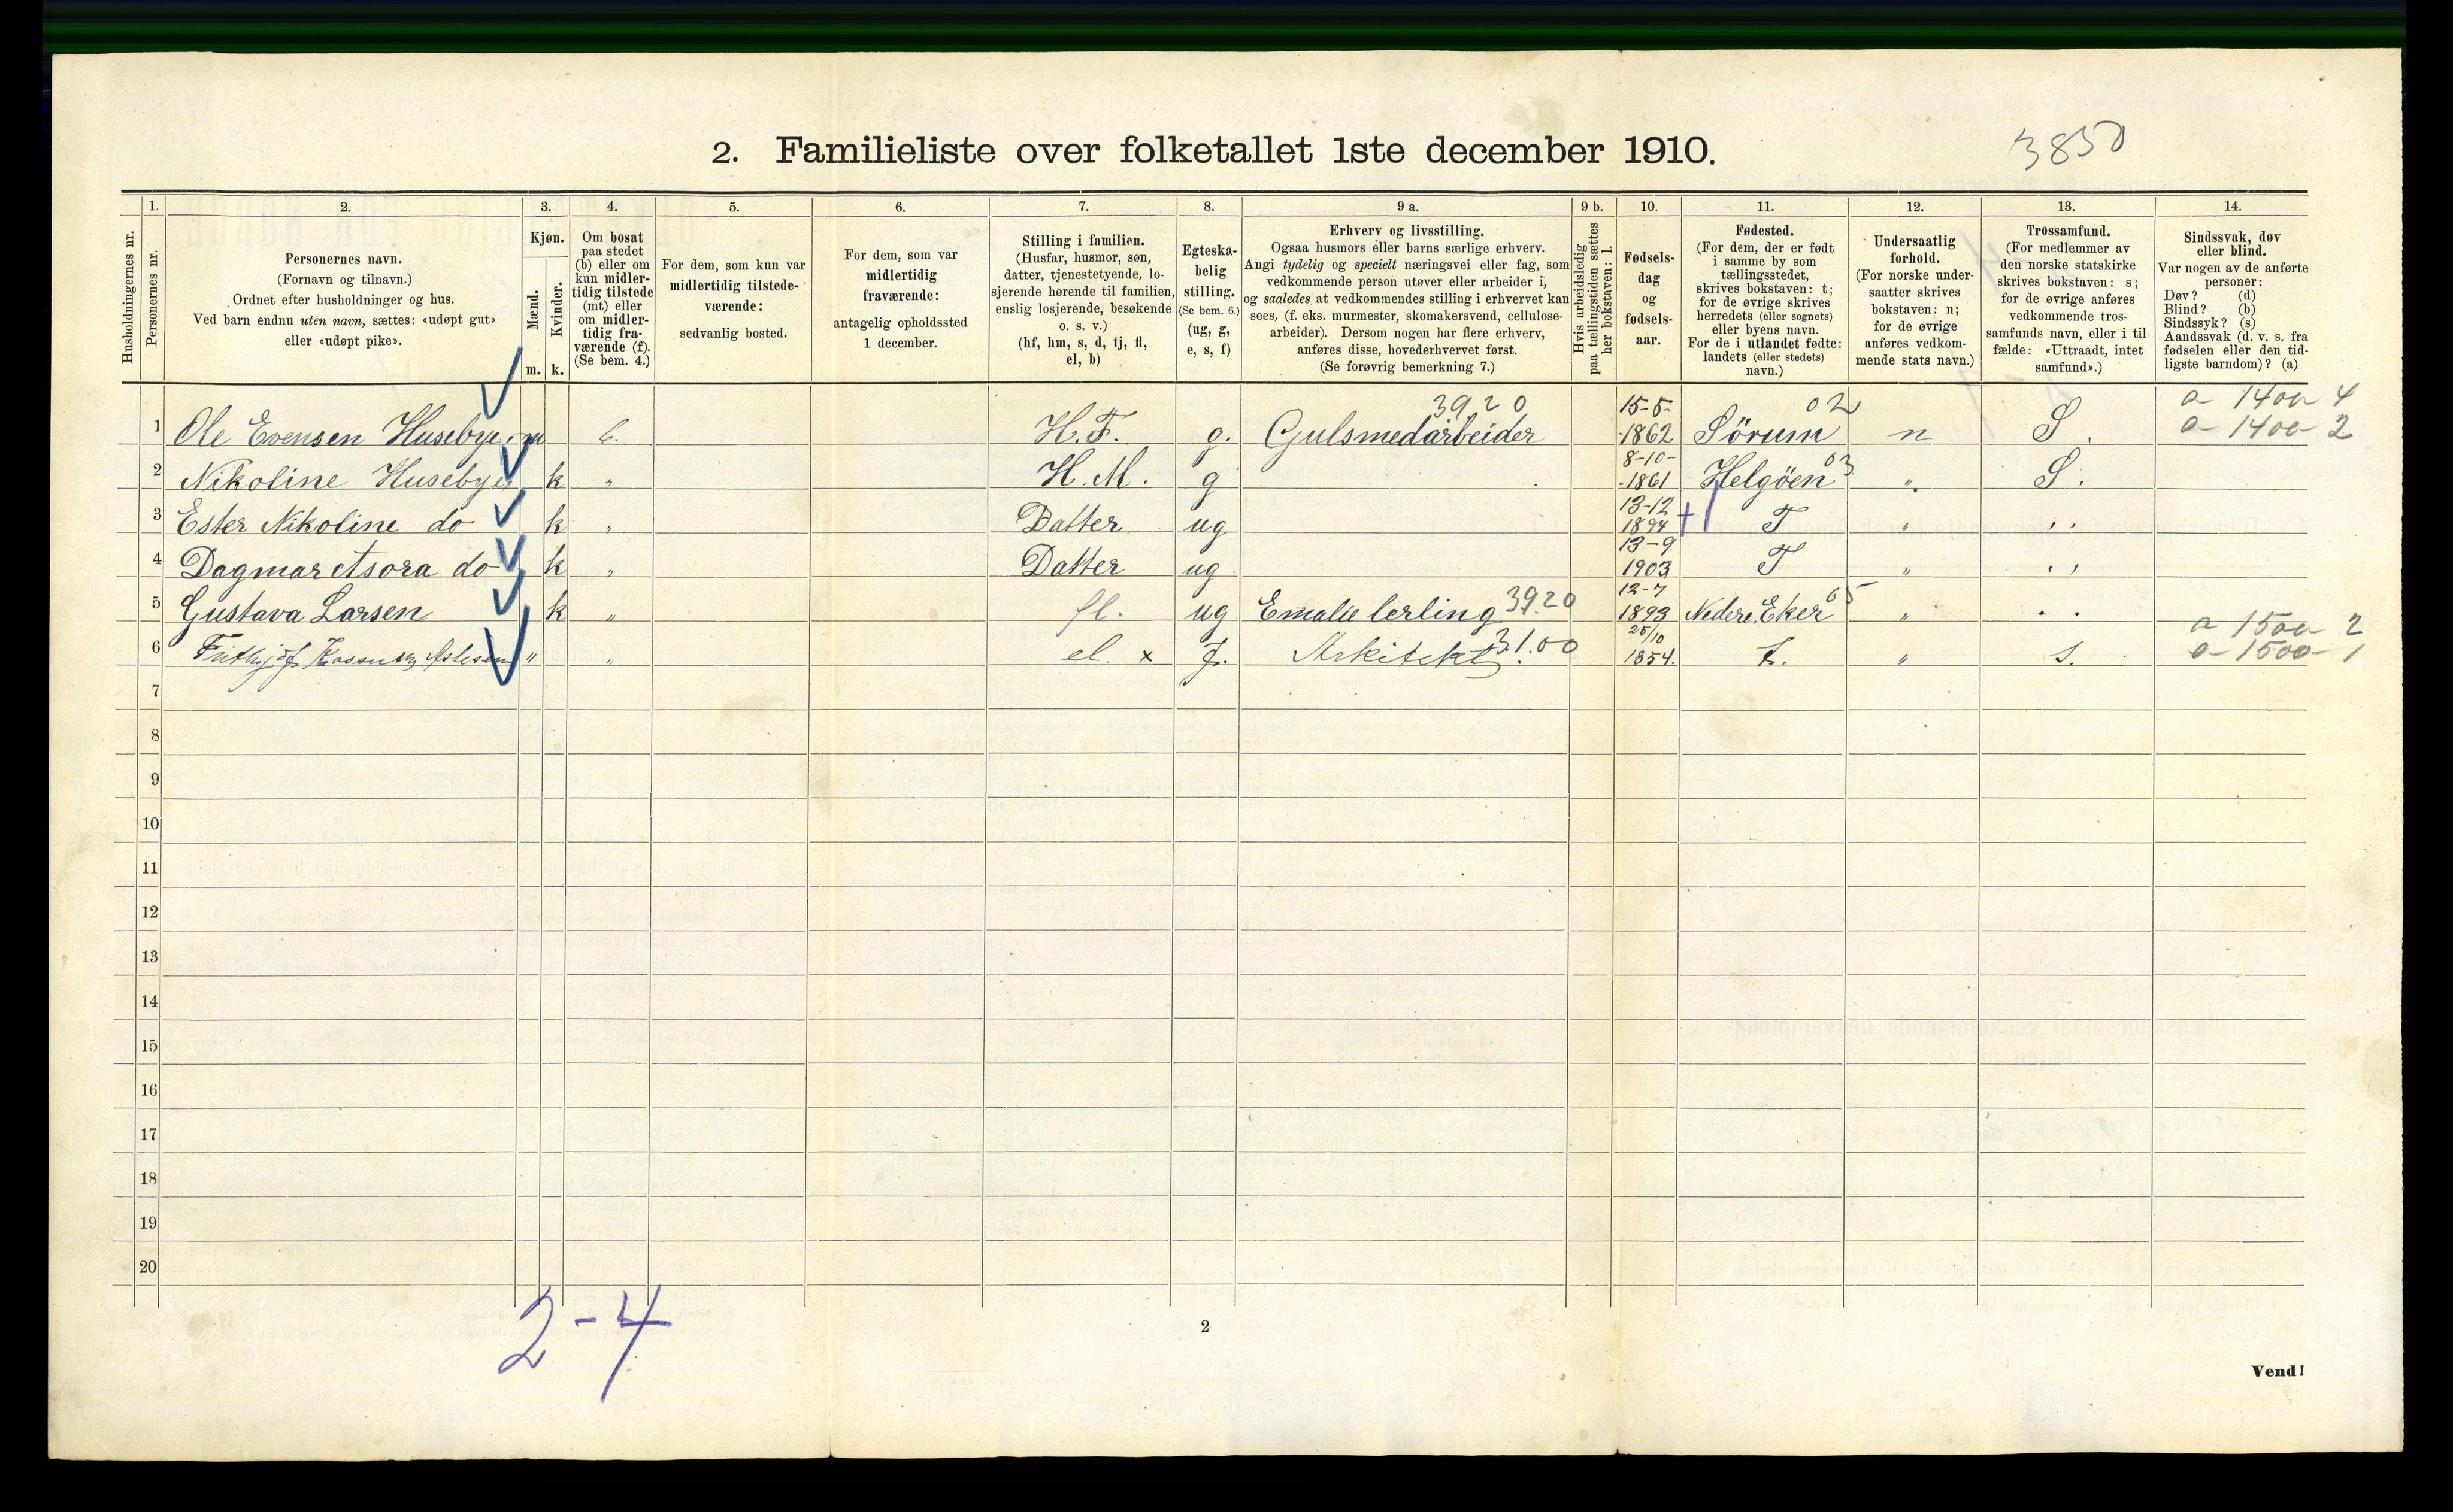 2. Familieliste over folketallet 1ste december 1910.
3850
1. 2. 3. 4. 5. 6. 7. 8. 9 a. 9 b. 10. 11. 12. 13. 14.
Husholdningernes nr.
Personernes nr.
Personernes navn.
(Fornavn og tilnavn.)
Ordnet efter husholdninger og hus.
Ved barn endnu uten navn, sættes: «udøpt gut»
eller «udøpt pike».
Kjøn.
Mænd.
Kvinder.
m. k.
Om bosat
paa stedet
(b) eller om
kun midler-
tidig tilstede
(mt) eller
om midler-
tidig fra-
værende (f).
(Se bem. 4.)
For dem, som kun var
midlertidig tilstede-
værende:
sedvanlig bosted.
For dem, som var
midlertidig
fraværende:
antagelig opholdssted
1 december.
Stilling i familien.
(Husfar, husmor, søn,
datter, tjenestetyende, lo-
sjerende hørende til familien,
enslig losjerende, besøkende
o. s. v.)
(hf, hm, s, d, tj, fl,
el, b)
Egteska-
belig
stilling.
(Se bem. 6.)
(ug, g,
e, s, f)
Erhverv og livsstilling.
Ogsaa husmors eller barns særlige erhverv.
Angi tydelig og specielt næringsvei eller fag, som
vedkommende person utøver eller arbeider i,
og saaledes at vedkommendes stilling i erhvervet kan
sees, (f. eks. murmester, skomakersvend, cellulose-
arbeider). Dersom nogen har flere erhverv,
anføres disse, hovederhvervet først.
(Se forøvrig bemerkning 7.)
Hvis arbeidsledig
paa tællingstiden sættes
her bokstaven: l.
Fødsels-
dag
og
fødsels-
aar.
Fødested.
(For dem, der er født
i samme by som
tællingsstedet,
skrives bokstaven: t;
for de øvrige skrives
herredets (eller sognets)
eller byens navn.
For de i utlandet fødte:
landets (eller stedets)
navn.)
Undersaatlig
forhold.
(For norske under-
saatter skrives
bokstaven: n;
for de øvrige
anføres vedkom-
mende stats navn.)
Trossamfund.
(For medlemmer av
den norske statskirke
skrives bokstaven: s;
for de øvrige anføres
vedkommende tros-
samfunds navn, eller i til-
fælde: «Uttraadt, intet
samfund».)
Sindssvak, døv
eller blind.
Var nogen av de anførte
personer:
Døv? (d)
Blind? (b)
Sindssyk? (s)
Aandssvak (d. v. s. fra
fødselen eller den tid-
ligste barndom)? (a)
3920 15-5- 02 a-1400-4
1 Ole Evensen Husebye m b. H.F. g. Gulsmedarbeider -1862 Sörum n S. a-1400-2
8-10- 03
2 Nikoline Husebye k " H.M. g -1861 Helgöen " S.
13-12
3 Ester Nikoline do k " Datter ug 1894 T " " 
13-9
4 Dagmar Asora do k " Datter ug 1903 T " "
12-7 05
5 Gustava Larsen k " fl. ug Emalie lerling 3920 1893 Nedre Eker " "
25/10 a-1500-2
6 " " el. x f. Arkitekt 31.00 1854. t. " s. a-1500-1
7
8
9
10
11
12
13
14
15
16
17
18
19
20
2-4
2
Vend!